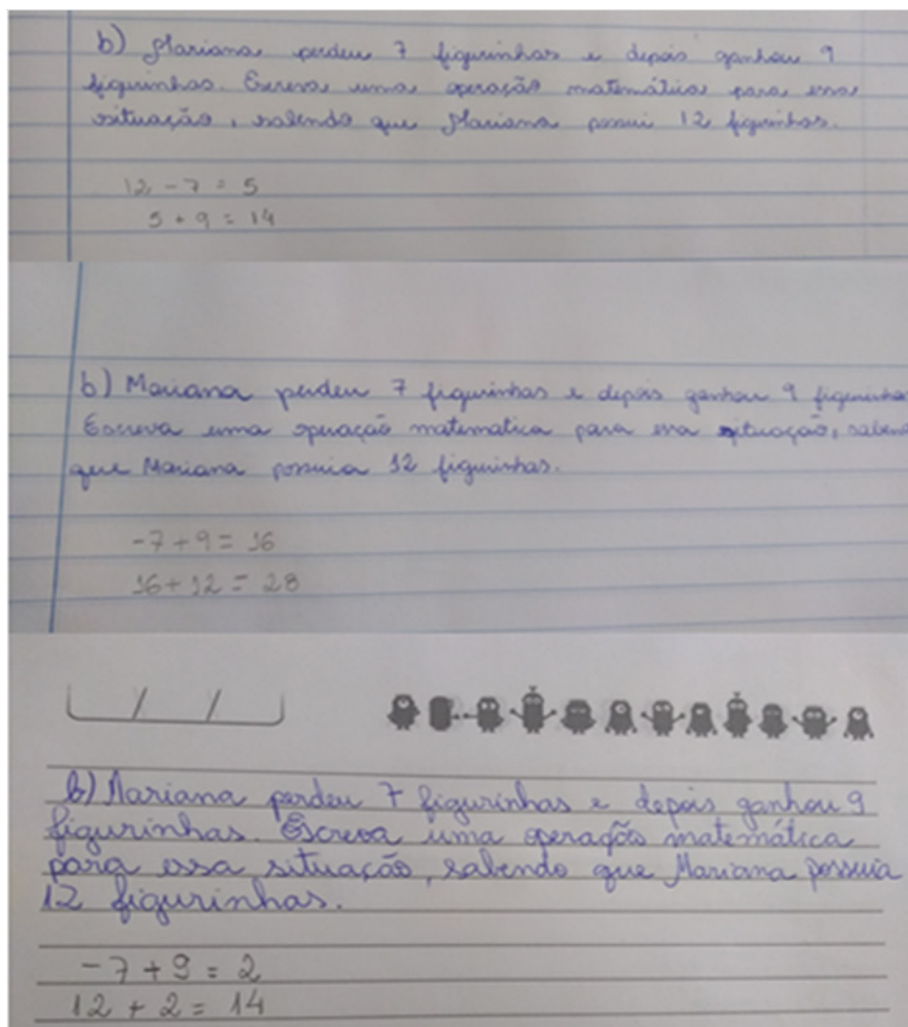 b) Mariana perdeu 7 figurinhas e depois ganhou 9
figurinhas. Escreva uma operação matemática para essa
situação, sabendo que Mariana possui 12 figurinhas.
12 - 7 = 5
5 + 9 = 14
b) Mariana perdeu 7 figurinhas e depois ganhou 9 figurinha
Escreva uma operação matematica para essa situação, saben
que Mariana possuia 12 figuinhas.
-7 + 9 = 16
16 + 12 = 28
b) Mariana perdeu 7 figurinhas e depois ganhou 9
figurinhas. Escreva uma operação matemática
para essa situação, sabendo que Mariana possuia
12 figurinhas.
-7 + 9 = 2
12 + 2 = 14